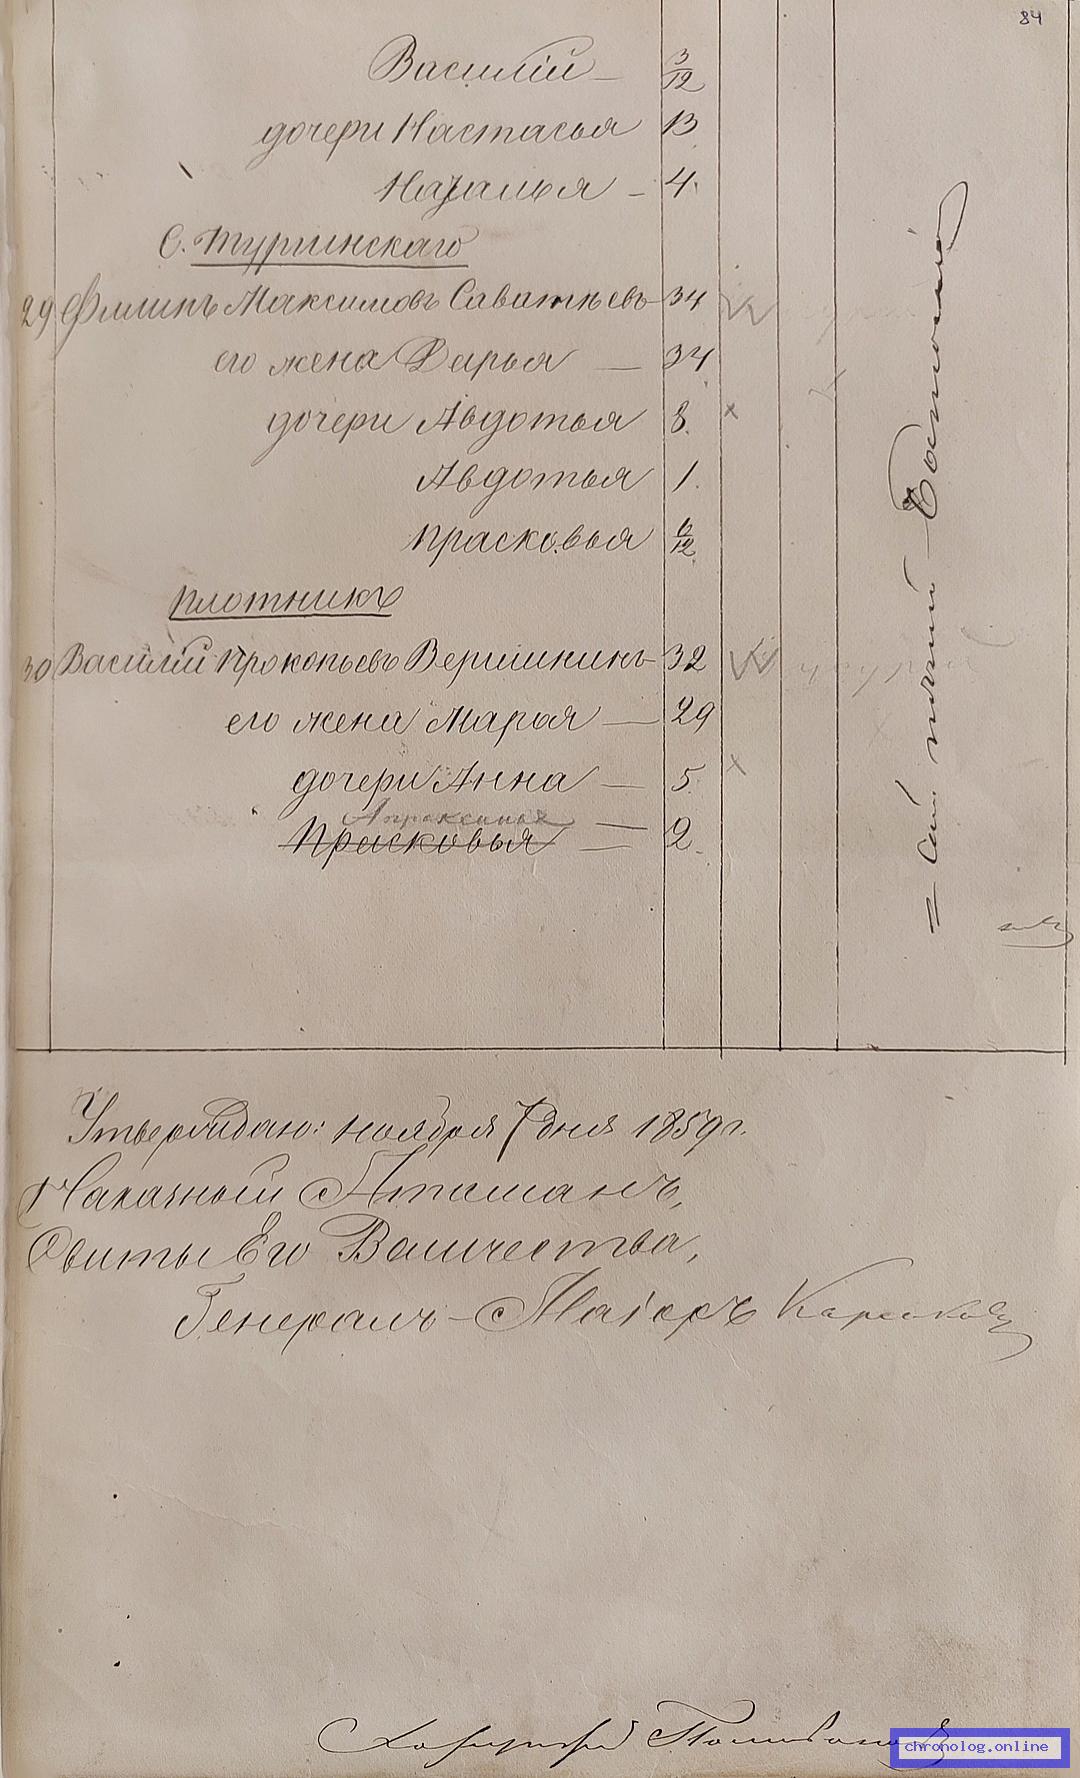 84
Василій — 3/12
дочери Настасья 13
Наталья — 4.
С. Туринскаго
29 Филипъ Максимовъ Саватѣевъ — 34
его жена Дарья — 34
дочери Авдотья 8.
Авдотья 1.
Прасковья 6/12
Плотникъ
30 Василій Прокопьевъ Вершининъ — 32
его жена Марья — 29
дочери Анна — 5.
Апраксинья
Прасковья — 2.
Утверждаю: ноября 7 дня 1859 г.
Наказный Атаманъ,
Свиты Его Величества,
Генералъ-Маіоръ
chronolog.online